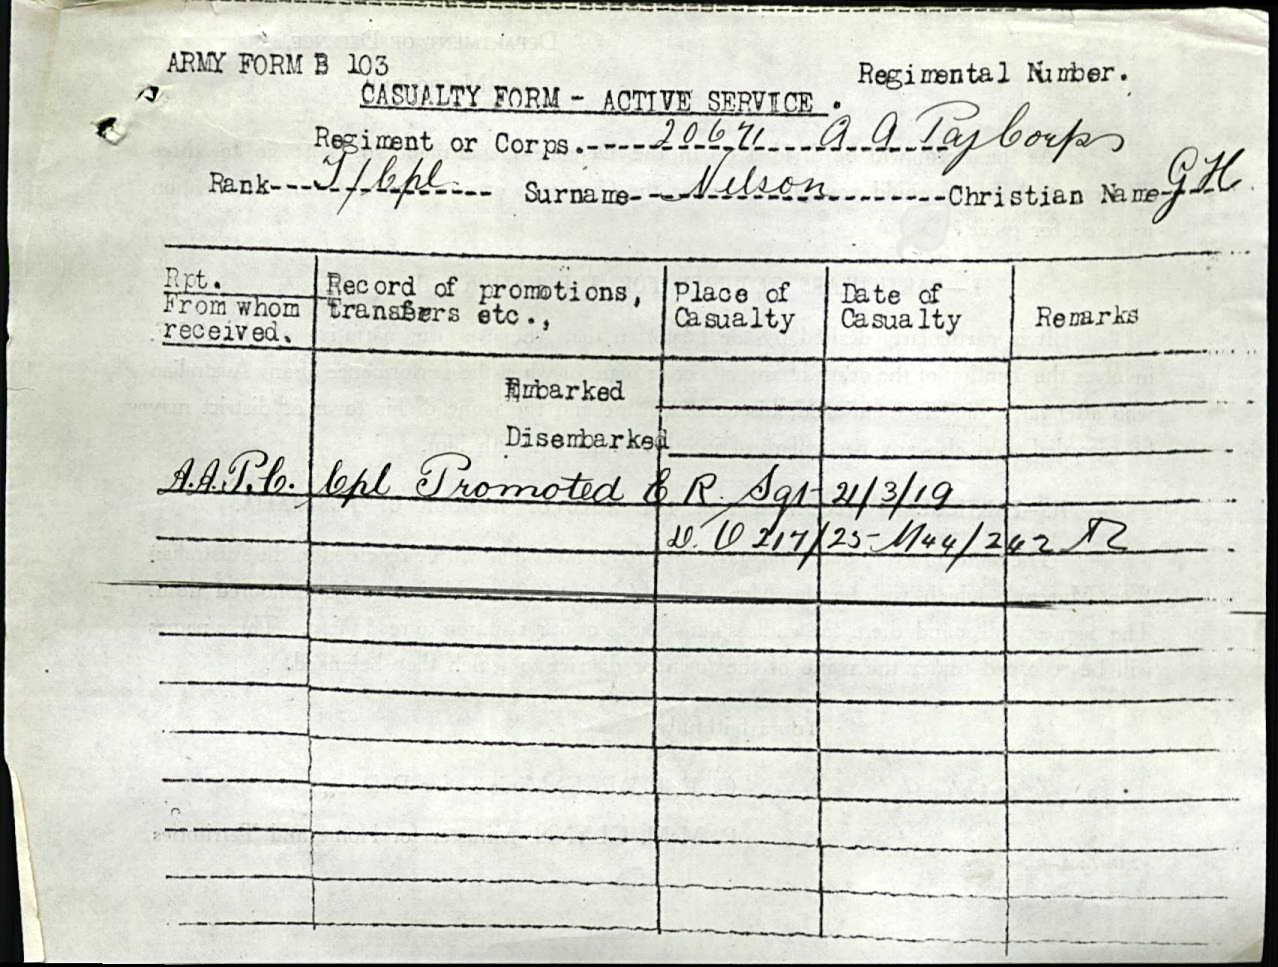 ARMY FORM B 103
Regimental Number.
CASUALTY FORM - ACTIVE SERVICE.
Regiment or Corps. 20671 A A Pay Corps
Rank T/Cpl. Surname Nelson Christian Name G H
Rpt. From whom received.
Record of promotions, transfers etc.,
Place of Casualty
Date of Casualty
Remarks
Embarked
Disembarked
A.A.P.C. Cpl Promoted E R. Sgt 21/3/19
D.O 217/25- M44/242